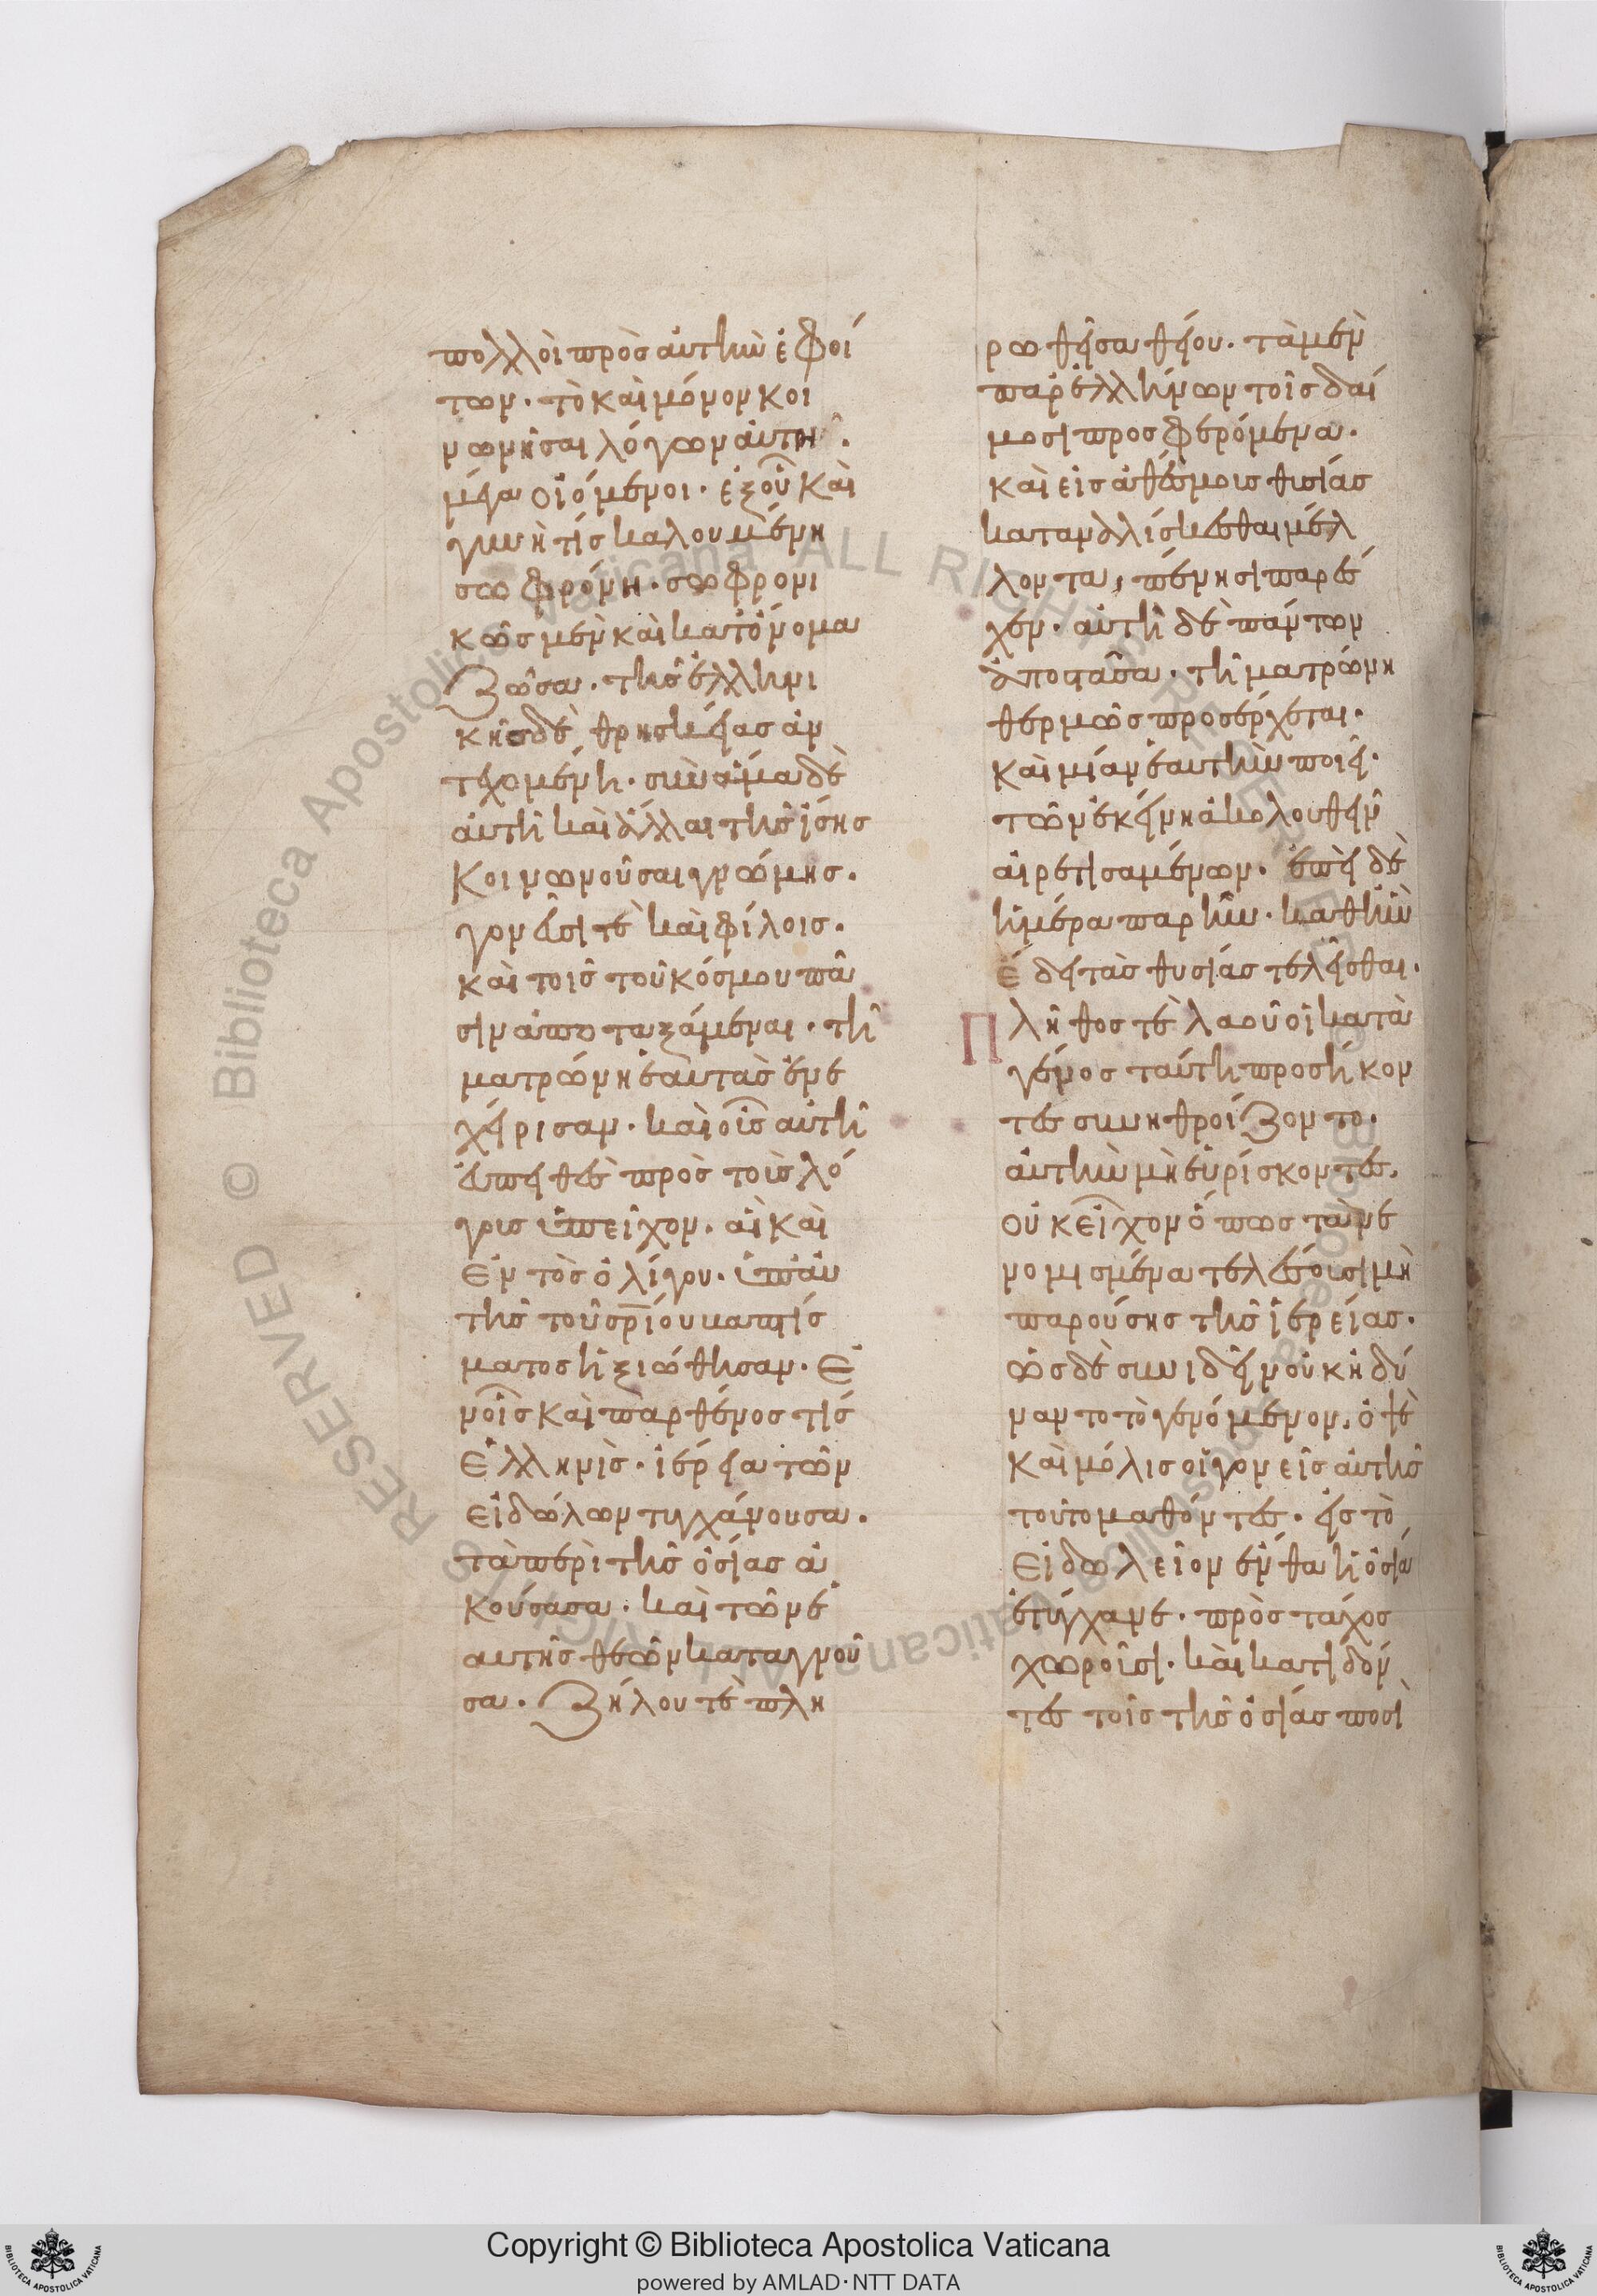 πολλοὶ πρὸς ἀυτὴν ἐφοί
των· τὸ καὶ μόνον κοι
νωνῆσαι λόγων ἀυτῆ·
μέγα οἰόμενοι· ἐξ οὗ καὶ
γυνή τίς καλουμένη
σωφρόνη· σωφρονι
κῶς μὲν καὶ κατόνομα
ζῶσα· τῆς ἑλληνι
κῆς δὲ θρησκείας ἀν
τεχομένη· σὺν ἅμα δὲ
ἀυτῆ καὶ ἄλλαι τῆς ἴσης
κοινωνοῦσαι γνώμης·
γονεῦσί τὲ καὶ φίλοις·
καὶ τοῖς τοῦ κόσμου πᾶ
σιν ἀποταξάμεναι· τῆ
ματρώνη ἑαυτὰς ἐνε
χείρισαν· καὶ οἷς ἀυτῆ
ἐυπειθὲς πρὸς τοὺς λό
γους ὑπεῖχον· αἳ καὶ
ἐντὸς ὀλίγου· ὑπ' ἀυ
τῆς τοῦ σρίου βαπτίσ
ματος ἠξιώθησαν· ἐ
ν οἷς καὶ παρθένος τίς
ἑλληνὶς· ἱέρεια τῶν
εἰδώλων τυγχάνουσα·
τὰ περὶ τῆς ὁσίας ἀ
κούσασα· καὶ τῶν ἑ
αυτῆς θεῶν καταγνοῦ
σα· ζήλου τὲ πλη
ρωθεῖσα θείου· τὰ μὲν
παρ' ἑλλήνων τοῖς δαί
μοσι προσφερόμενα·
καὶ εἰς ἀθέσμους θυσίας
καταναλίσκεσθαι μέλ
λοντα, πένησι παρέ
χεν· ἀυτὴ δὲ πάντων
ἀποστᾶσα· τῆ ματρώνη
θερμῶς προσέρχεται·
καὶ μίαν ἑαυτὴν ποιεῖ·
τῶν ἐκείνη ἀκολουθεῖν
αἱρετισαμένων· ἐπεὶ δὲ
ἡμέρα παρῆν· καθ' ἣν
ἔδει τὰς θυσίας τελεῖσθαι·
Πλῆθος τὲ λαοῦ οἱ κατὰ
γένος ταύτη προσήκον
τες συνηθροίζοντο·
ἀυτὴν μὴ ἑυρίσκοντες,
οὐκ εἶχον ὅπως τὰ νε
νομισμένα τελέσουσι μὴ
παρούσης τῆς ἱερείας·
ὡς δὲ συνιδεῖν οὐκ ἠδύ
ναντο τὸ γενόμενον, ὀψὲ
καὶ μόλις οἱ γονεῖς ἀυτῆς
τοῦτο μαθόντες· εἰς τὸ
εἰδωλεῖον ἔνθα ἡ ὁσία
ἐτύγχανε· πρὸς τάχος
χωροῦσι· καὶ κατιδόν
τες τοῖς τῆς ὁσίας ποσὶ
Copyright © Biblioteca Apostolica Vaticana
powered by AMLAD·NTT DATA